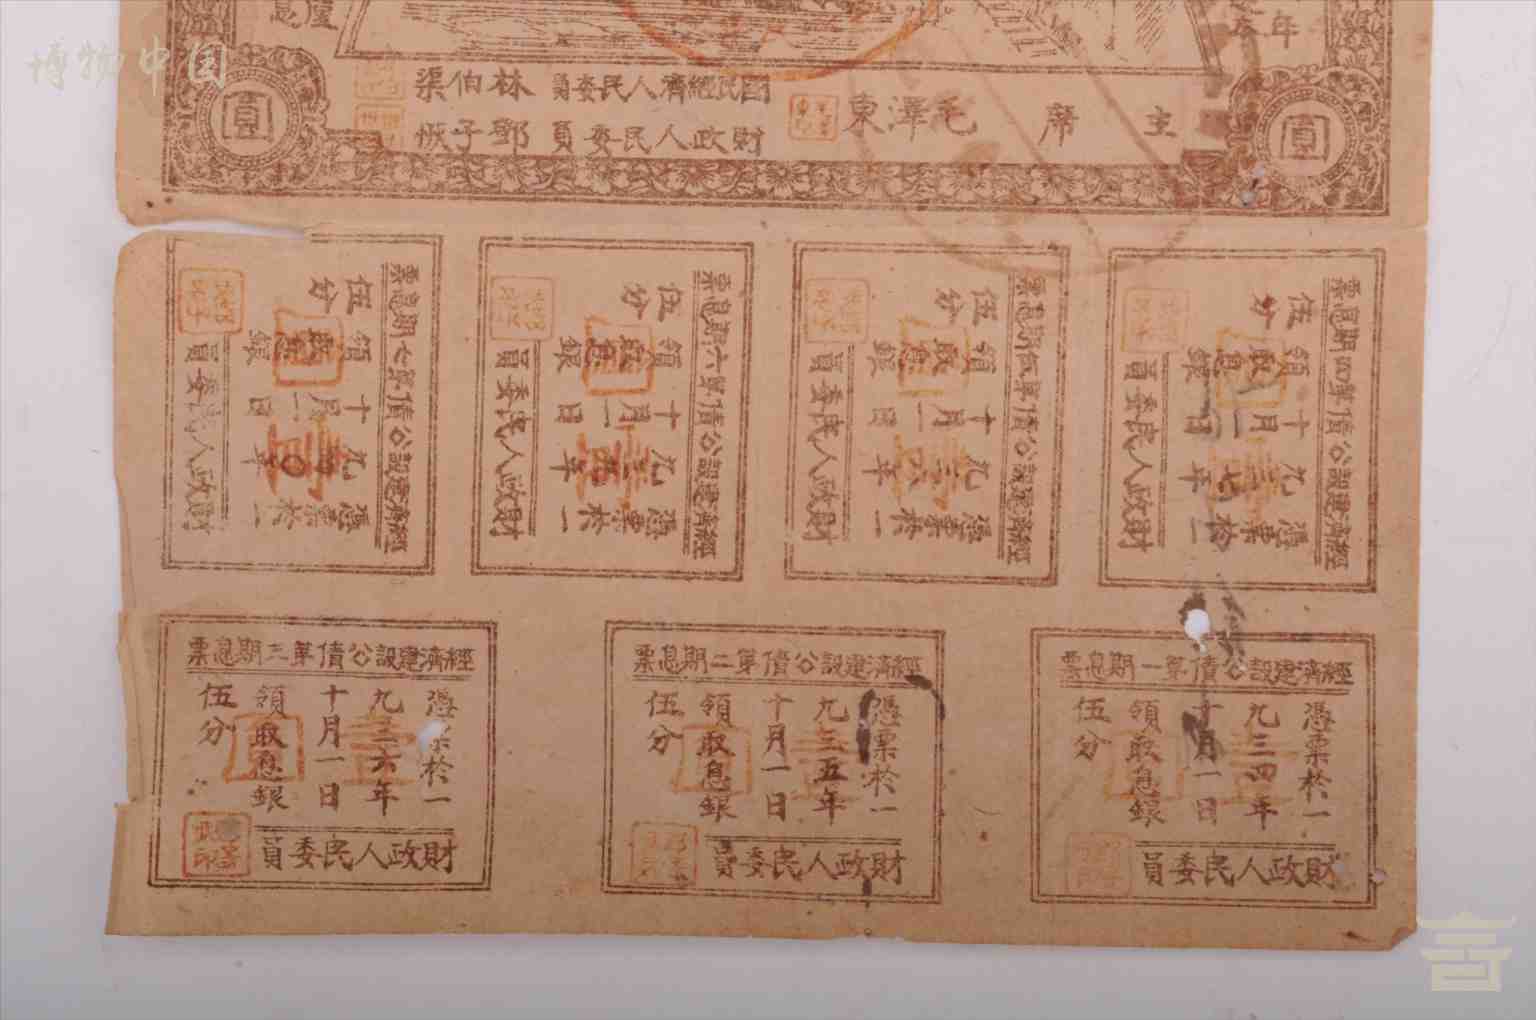 博物中国
圓
圓
年
主席 毛澤東
國民經濟人民委員 林伯渠
財政人民委員 鄧子恢
經濟建設公債第四期息票
憑票於一
九三七年
十月一日
領取息銀
伍分
財政人民委員
經濟建設公債第伍期息票
憑票於一
九三八年
十月一日
領取息銀
伍分
財政人民委員
經濟建設公債第六期息票
憑票於一
九三九年
十月一日
領取息銀
伍分
財政人民委員
經濟建設公債第七期息票
憑票於一
九四〇年
十月一日
領取息銀
伍分
財政人民委員
經濟建設公債第一期息票
憑票於一
九三四年
十月一日
領取息銀
伍分
財政人民委員
經濟建設公債第二期息票
憑票於一
九三五年
十月一日
領取息銀
伍分
財政人民委員
經濟建設公債第三期息票
憑票於一
九三六年
十月一日
領取息銀
伍分
財政人民委員